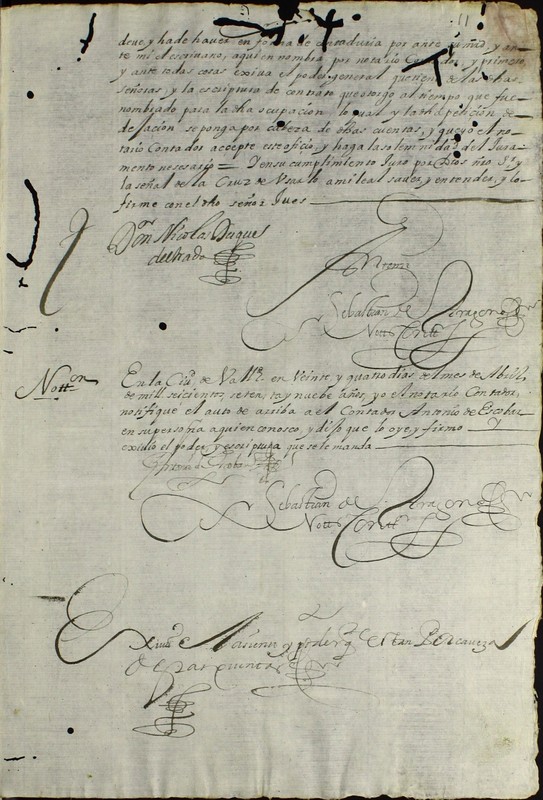 11
deve y ha de haver en forma de contaduria por ante mi
mi el escrivano, aqui en nombra por notario Contador, y primero
y ante todas cosas exiva el poder general que tiene de las dhas
señoras, y la escriptura de que otorgo al tiempo que fue
nombrado para la dha ocupacion, lo qual y la dha peticion de
se ponga por cabeza de dhas cuentas, y que yo el no
tario Contador accepte este oficio, y haga la solemnidad del Jura
mento necesario = Y en su cumplimiento Juro por Dios nro Sr y
la señal de la Cruz de Usarlo a mi leal saver, y entender, y lo
firme con el dho señor Jues
Don Nicolas Duques
del Prado
Ante mi
Sebastian de
Nott
Notton
En la Ciud de Vallid en Veinte y quatro dias del mes de Abril
de mill seicientos, setenta y nuebe años, yo el notario Contador,
notifique el auto de arriba a el Contador Antonio de Escobar
en su persona a quien conosco, y dijo que lo oye, y firmo y
exivio el poder, y escriptura que se le manda
Antonio de Escobar
Sebastian de
Nott
Exivio y poder q estan Por caveza
de las quentas